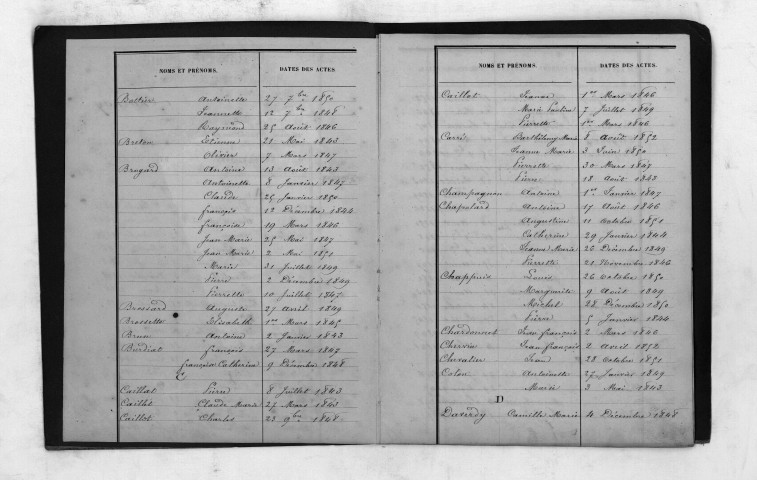 NOMS ET PRÉNOMS. DATES DES ACTES.
Antoinette 27 7bre 1850
Jeannette 12 7bre 1848
Raymond 25 Août 1846
Breton Etienne 21 Mai 1843
Olivier 7 Mars 1847
Brugard Antoine 13 Août 1843
Antoinette 8 Janvier 1847
Claude 25 Janvier 1850
françois 12 Décembre 1844
françoise 19 Mars 1846
Jean Marie 25 Mai 1847
Jean Marie 2 Mai 1851
Marie 31 Juillet 1849
Pierre 2 Décembre 1849
Pierrette 10 Juillet 1845
Brossard Auguste 27 Avril 1849
Brossette Elisabeth 1er Mars 1845
Brun Antoine 2 Janvier 1843
Burdiat françois 27 Mars 1847
françoise Catherine 9 Décembre 1848
C
Caillat Pierre 8 Juillet 1843
Caillot Claude Marie 27 Mars 1843
Caillot Charles 23 9bre 1848
NOMS ET PRÉNOMS. DATES DES ACTES.
Caillot 1er Mars 1846
Marie 7 Juillet 1849
Pierrette 1er Mars 1846
Carré Barthélemy Marie 8 Août 1852
Jeanne Marie 3 Juin 1850
Pierrette 30 Mars 1847
Pierre 18 Août 1843
Champagnon Antoine 1er Janvier 1847
Chapelard Antoine 17 Août 1846
Augustine 11 Octobre 1851
Catherine 29 Janvier 1844
Jeanne Marie 26 Décembre 1849
Pierrette 21 Novembre 1846
Chappuis Louis 26 Octobre 1850
Marguerite 9 Août 1849
Michel 28 Décembre 1850
Pierre 5 Janvier 1844
Chardonnet Jean françois 2 Mars 1846
Chervin Jean françois 2 Avril 1852
Chevalier Jean 28 Octobre 1851
Colon Antoinette 27 Janvier 1849
Marie 3 Mai 1843
D
Camille Marie 4 Décembre 1848